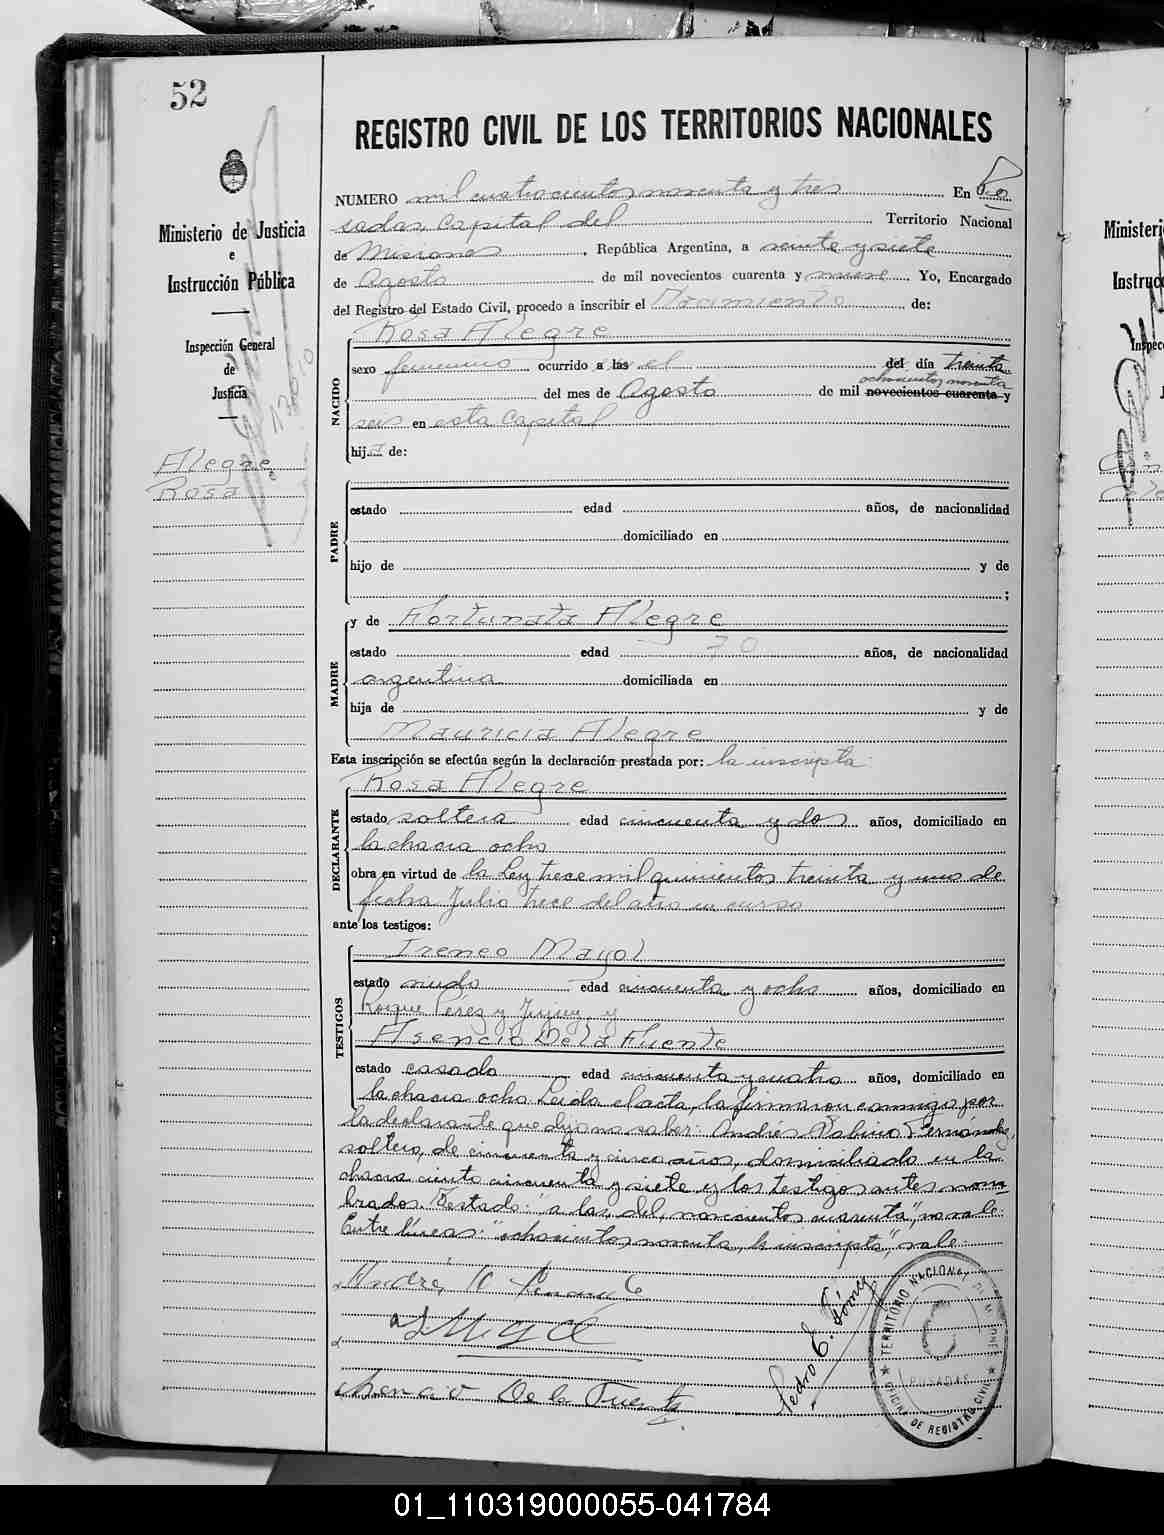 52
REGISTRO CIVIL DE LOS TERRITORIOS NACIONALES
Ministerio de Justicia
e
Instrucción Pública
Inspección General
de
Justicia
Alegre
Rosa
NUMERO mil cuatrocientos noventa y tres En Po
sadas, Capital del Territorio Nacional
de Misiones, República Argentina, a veinte y siete
de Agosto de mil novecientos cuarenta y nueve Yo, Encargado
del Registro del Estado Civil, procedo a inscribir el Nacimiento de:
NACIDO
Rosa Alegre
sexo femenino ocurrido a las el del día treinta
ochocientos noventa
del mes de Agosto de mil novecientos cuarenta y
seis en esta Capital
hija de:
PADRE
estado edad años, de nacionalidad
domiciliado en
hijo de y de
;
MADRE
y de Fortunata Alegre
estado edad 70 años, de nacionalidad
argentina domiciliada en
hija de y de
Mauricia Alegre
Esta inscripción se efectúa según la declaración prestada por: la inscripta
DECLARANTE
Rosa Alegre
estado soltera edad cincuenta y dos años, domiciliado en
la chacra ocho
obra en virtud de la Ley trece mil quinientos treinta y uno de
fecha Julio trece del año en curso
ante los testigos:
TESTIGOS
Ireneo Mayol
estado viudo edad cincuenta y ocho años, domiciliado en
Roque Pérez y Jujuy, y
Asencio De la Fuente
estado casado edad cincuenta y cuatro años, domiciliado en
la chacra ocho Leida el acta, la firmaron conmigo por
la declarante que dijo no saber: Andrés Fernández,
soltero, de cincuenta y cinco años, domiciliado en la
chacra ciento cincuenta y siete y los testigos antes nom
brados. Testado: "a las, del, novecientos cuarenta", no vale.
Entre líneas: "ochocientos noventa, la inscripta", vale.
Asencio De la Fuente
Pedro E. Gómez
TERRITORIO NACIONAL DE MISIONES
POSADAS
OFICINA DE REGISTRO CIVIL
Ministeri
Instruc
Inspec
01_110319000055-041784